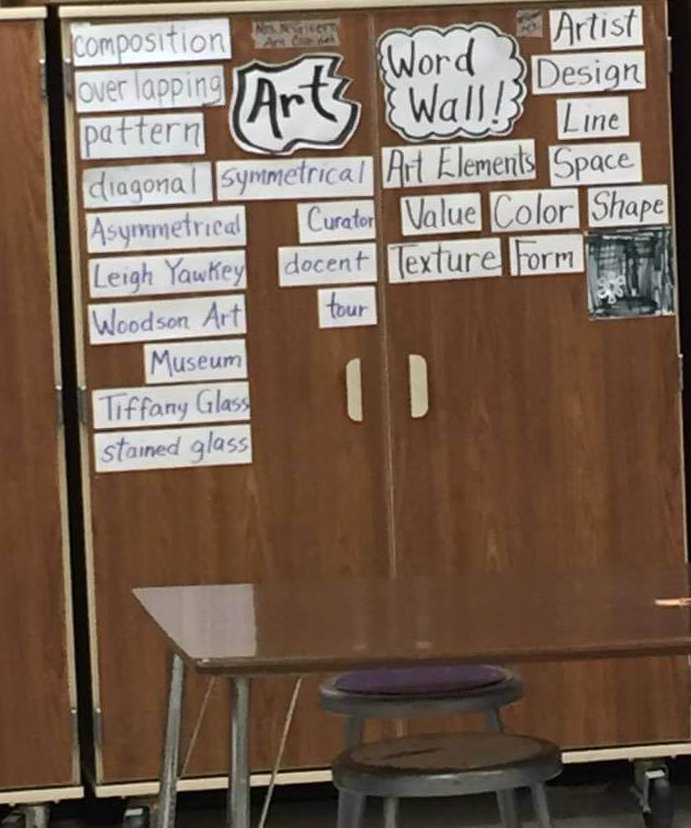 composition
overlapping
pattern
diagonal
symmetrical
Asymmetrical
Leigh Yawkey
Woodson Art
Museum
Tiffany Glass
stained glass
Art
Curator
docent
tour
Word
Wall!
Artist
Design
Line
Art Elements
Space
Value
Color
Shape
Texture
Form